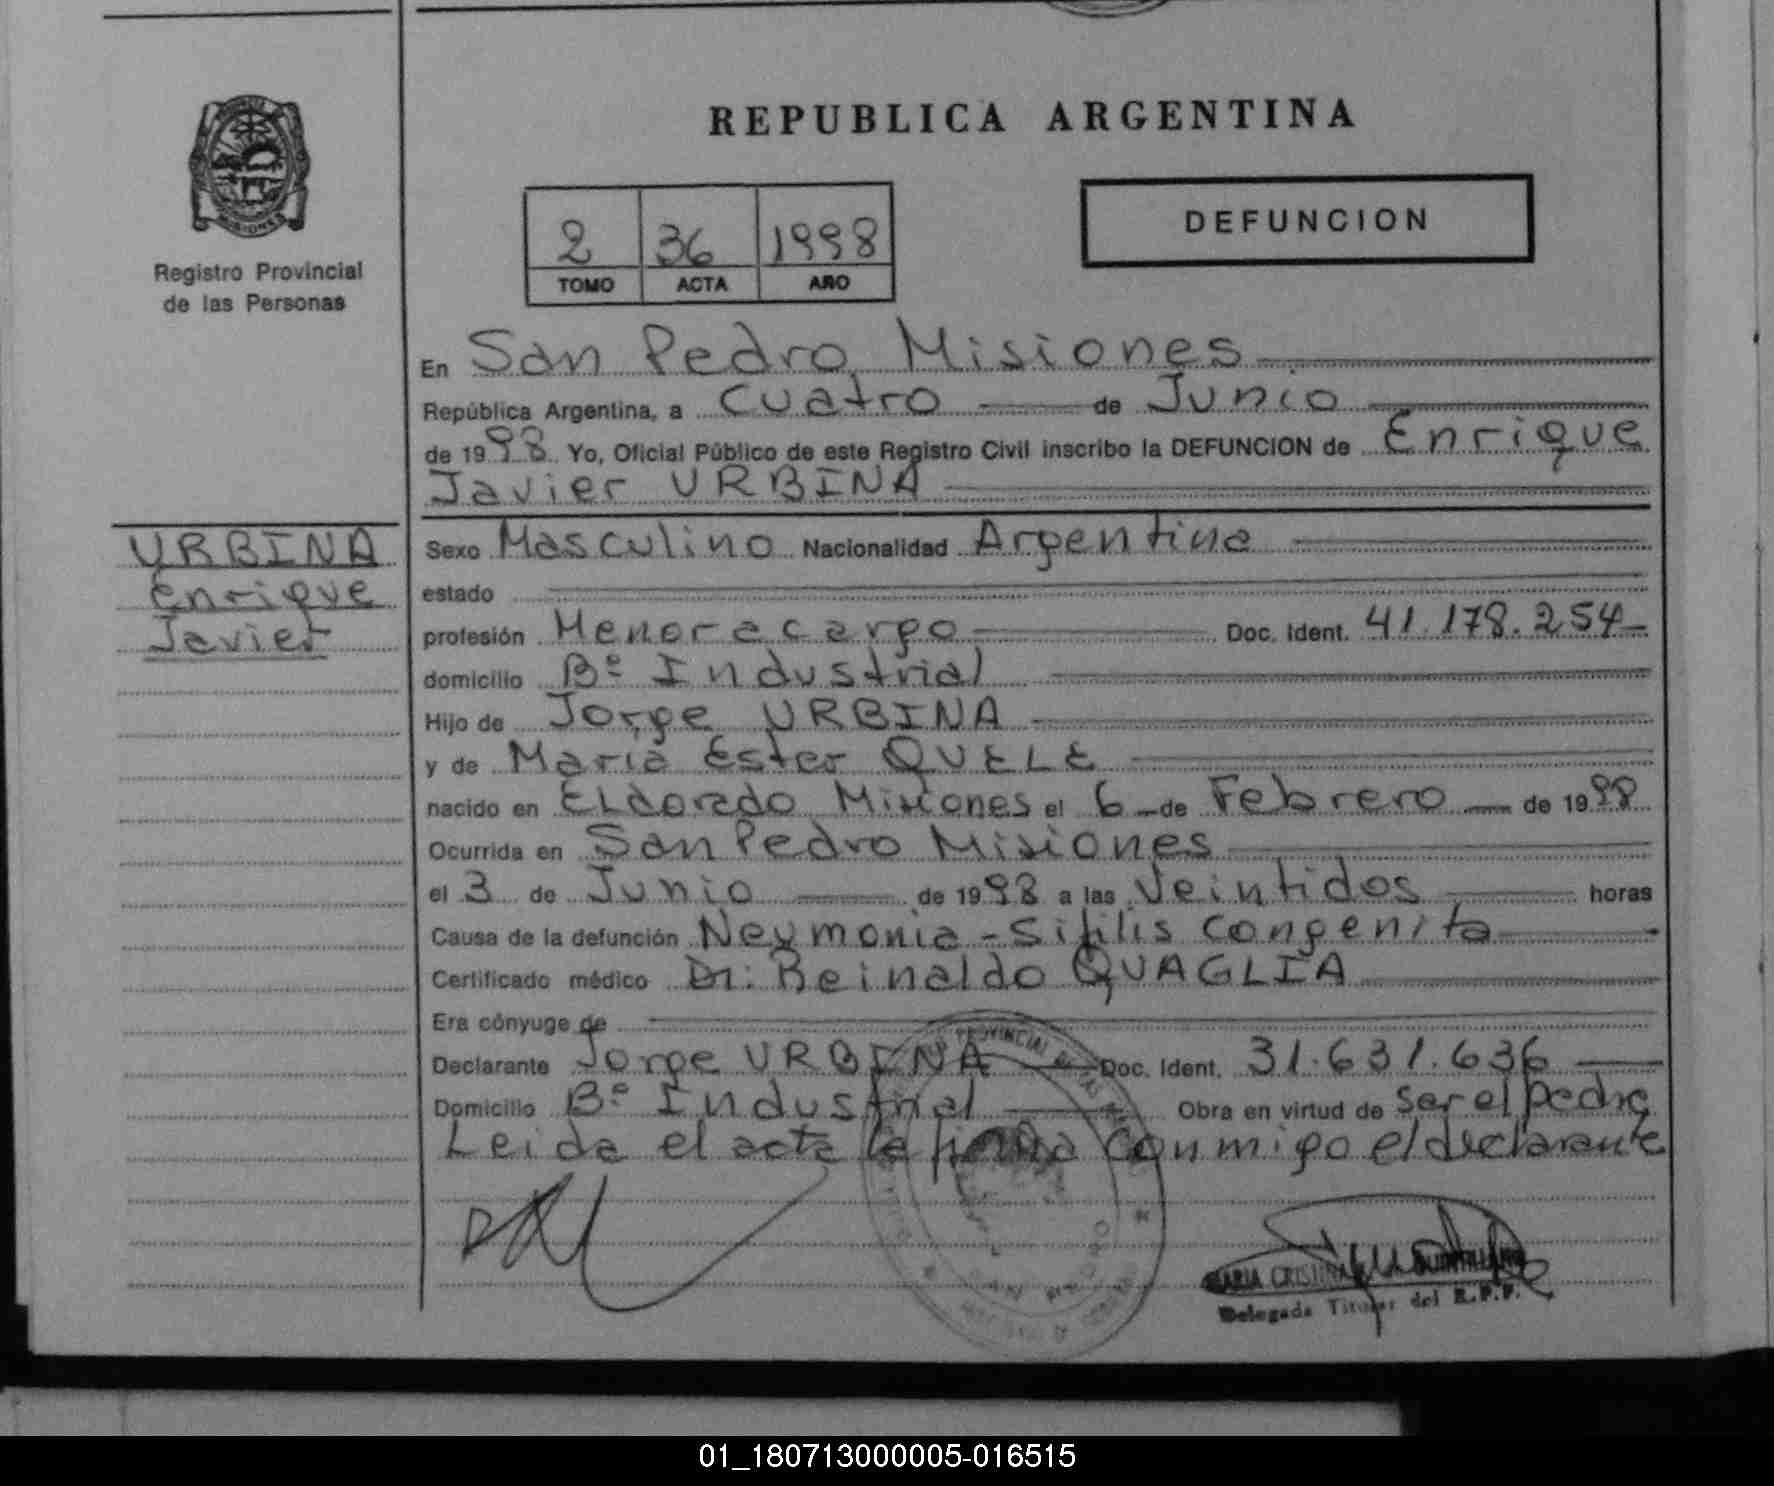 REPUBLICA ARGENTINA
MISIONES
Registro Provincial
de las Personas
2 36 1998
TOMO ACTA AÑO
DEFUNCION
En San Pedro, Misiones
República Argentina, a Cuatro de Junio
de 1998 Yo, Oficial Público de este Registro Civil inscribo la DEFUNCION de Enrique
Javier URBINA
URBINA
Enrique
Javier
Sexo Masculino Nacionalidad Argentina
estado
profesión Menor a cargo Doc. Ident. 41.178.254
domicilio Bº Industrial
Hijo de Jorge URBINA
y de Maria Ester QUELE
nacido en ELdorado Misiones el 6 de Febrero de 1998
Ocurrida en San Pedro Misiones
el 3 de Junio de 1998 a las Veintidos horas
Causa de la defunción Neumonia - Sifilis Congenita
Certificado médico Dr: Reinaldo QUAGLIA
Era cónyuge de
Declarante Jorge URBINA Doc. Ident. 31.631.636
Domicilio Bº Industrial Obra en virtud de Ser el padre
Leida el acta la firma Conmigo el declarante
PROVINCIAL DE LAS
MARIA CRISTINA
Delegada Titular del R.P.P.
01_180713000005-016515